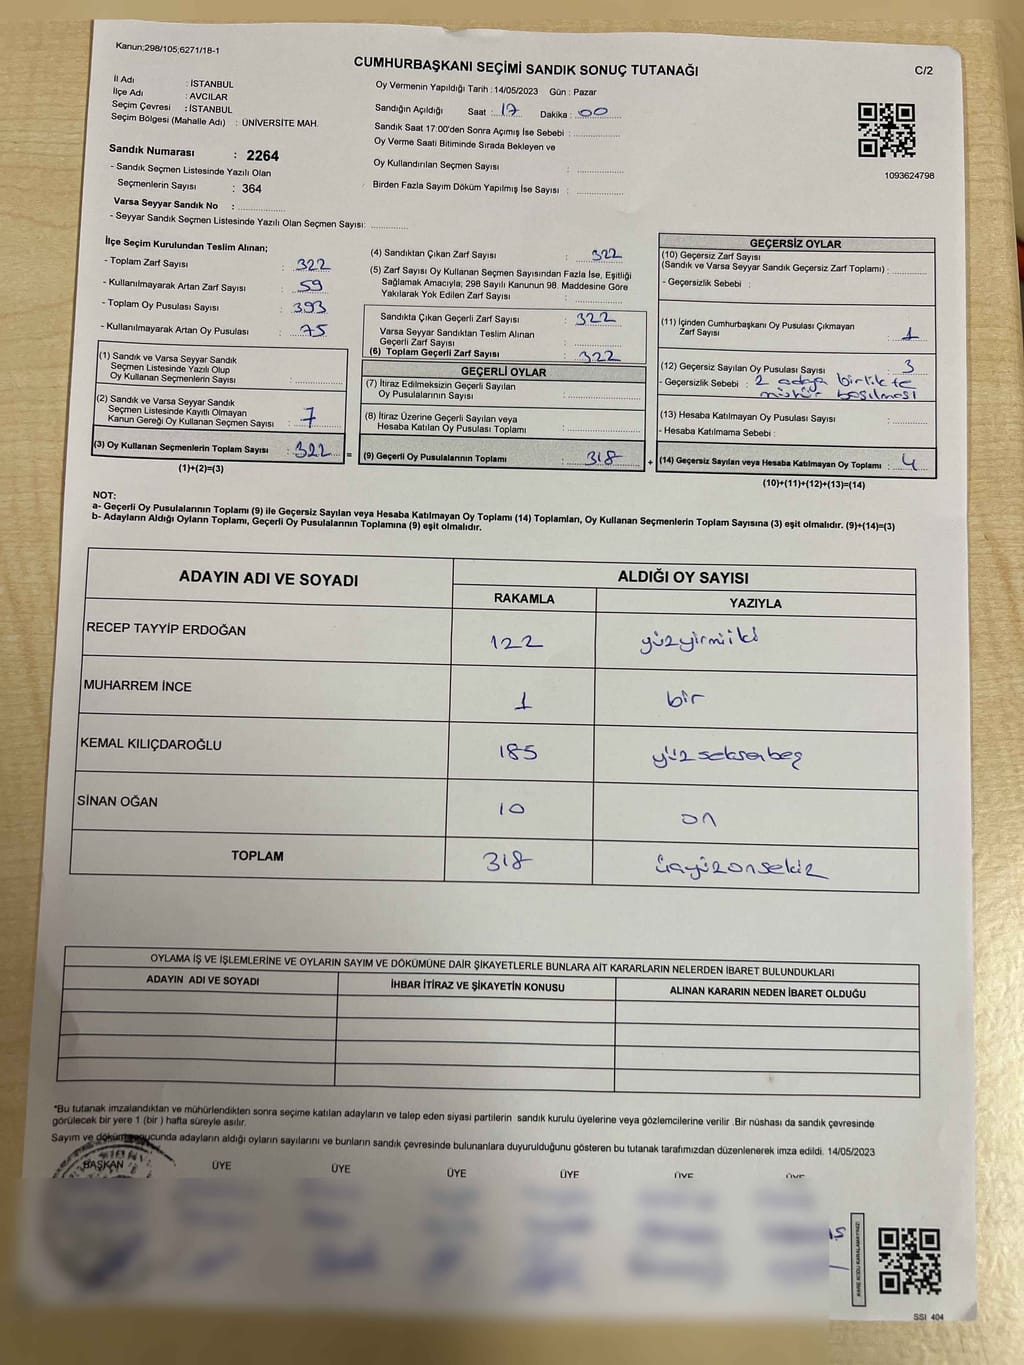 Kanun;298/105;6271/18-1
CUMHURBAŞKANI SEÇİMİ SANDIK SONUÇ TUTANAĞI
C/2
İl Adı : İSTANBUL
İlçe Adı : AVCILAR
Seçim Çevresi : İSTANBUL
Seçim Bölgesi (Mahalle Adı) : ÜNİVERSİTE MAH.
Sandık Numarası : 2264
- Sandık Seçmen Listesinde Yazılı Olan
Seçmenlerin Sayısı : 364
Varsa Seyyar Sandık No :
- Seyyar Sandık Seçmen Listesinde Yazılı Olan Seçmen Sayısı:
Oy Vermenin Yapıldığı Tarih : 14/05/2023 Gün : Pazar
Sandığın Açıldığı Saat : 17 Dakika : 00
Sandık Saat 17:00'den Sonra Açımış İse Sebebi :
Oy Verme Saati Bitiminde Sırada Bekleyen ve
Oy Kullandırılan Seçmen Sayısı :
Birden Fazla Sayım Döküm Yapılmış İse Sayısı :
1093624798
İlçe Seçim Kurulundan Teslim Alınan;
- Toplam Zarf Sayısı : 322
- Kullanılmayarak Artan Zarf Sayısı : 59
- Toplam Oy Pusulası Sayısı : 393
- Kullanılmayarak Artan Oy Pusulası : 75
(1) Sandık ve Varsa Seyyar Sandık
Seçmen Listesinde Yazılı Olup
Oy Kullanan Seçmenlerin Sayısı :
(2) Sandık ve Varsa Seyyar Sandık
Seçmen Listesinde Kayıtlı Olmayan
Kanun Gereği Oy Kullanan Seçmen Sayısı : 7
(3) Oy Kullanan Seçmenlerin Toplam Sayısı : 322 =
(1)+(2)=(3)
(4) Sandıktan Çıkan Zarf Sayısı : 322
(5) Zarf Sayısı Oy Kullanan Seçmen Sayısından Fazla İse, Eşitliği
Sağlamak Amacıyla; 298 Sayılı Kanunun 98. Maddesine Göre
Yakılarak Yok Edilen Zarf Sayısı :
Sandıkta Çıkan Geçerli Zarf Sayısı : 322
Varsa Seyyar Sandıktan Teslim Alınan
Geçerli Zarf Sayısı :
(6) Toplam Geçerli Zarf Sayısı : 322
GEÇERLİ OYLAR
(7) İtiraz Edilmeksizin Geçerli Sayılan
Oy Pusulalarının Sayısı :
(8) İtiraz Üzerine Geçerli Sayılan veya
Hesaba Katılan Oy Pusulası Toplamı :
(9) Geçerli Oy Pusulalarının Toplamı : 318 +
GEÇERSİZ OYLAR
(10) Geçersiz Zarf Sayısı
(Sandık ve Varsa Seyyar Sandık Geçersiz Zarf Toplamı) :
- Geçersizlik Sebebi :
(11) İçinden Cumhurbaşkanı Oy Pusulası Çıkmayan
Zarf Sayısı : 1
(12) Geçersiz Sayılan Oy Pusulası Sayısı : 3
- Geçersizlik Sebebi : 2 adaya birlikte
mühür basılması
(13) Hesaba Katılmayan Oy Pusulası Sayısı :
- Hesaba Katılmama Sebebi :
(14) Geçersiz Sayılan veya Hesaba Katılmayan Oy Toplamı : 4
(10)+(11)+(12)+(13)=(14)
NOT:
a- Geçerli Oy Pusulalarının Toplamı (9) ile Geçersiz Sayılan veya Hesaba Katılmayan Oy Toplamı (14) Toplamları, Oy Kullanan Seçmenlerin Toplam Sayısına (3) eşit olmalıdır. (9)+(14)=(3)
b- Adayların Aldığı Oyların Toplamı, Geçerli Oy Pusulalarının Toplamına (9) eşit olmalıdır.
ADAYIN ADI VE SOYADI ALDIĞI OY SAYISI
RAKAMLA YAZIYLA
RECEP TAYYİP ERDOĞAN 122 yüzyirmiiki
MUHARREM İNCE 1 bir
KEMAL KILIÇDAROĞLU 185 yüzseksenbeş
SİNAN OĞAN 10 on
TOPLAM 318 üçyüzonsekiz
OYLAMA İŞ VE İŞLEMLERİNE VE OYLARIN SAYIM VE DÖKÜMÜNE DAİR ŞİKAYETLERLE BUNLARA AİT KARARLARIN NELERDEN İBARET BULUNDUKLARI
ADAYIN ADI VE SOYADI İHBAR İTİRAZ VE ŞİKAYETİN KONUSU ALINAN KARARIN NEDEN İBARET OLDUĞU
*Bu tutanak imzalandıktan ve mühürlendikten sonra seçime katılan adayların ve talep eden siyasi partilerin sandık kurulu üyelerine veya gözlemcilerine verilir .Bir nüshası da sandık çevresinde
görülecek bir yere 1 (bir ) hafta süreyle asılır.
Sayım ve döküm sonucunda adayların aldığı oyların sayılarını ve bunların sandık çevresinde bulunanlara duyurulduğunu gösteren bu tutanak tarafımızdan düzenlenerek imza edildi. 14/05/2023
BAŞKAN ÜYE ÜYE ÜYE ÜYE ÜYE ÜYE
KARE KODU KARALAMAYINIZ!
SSI 404